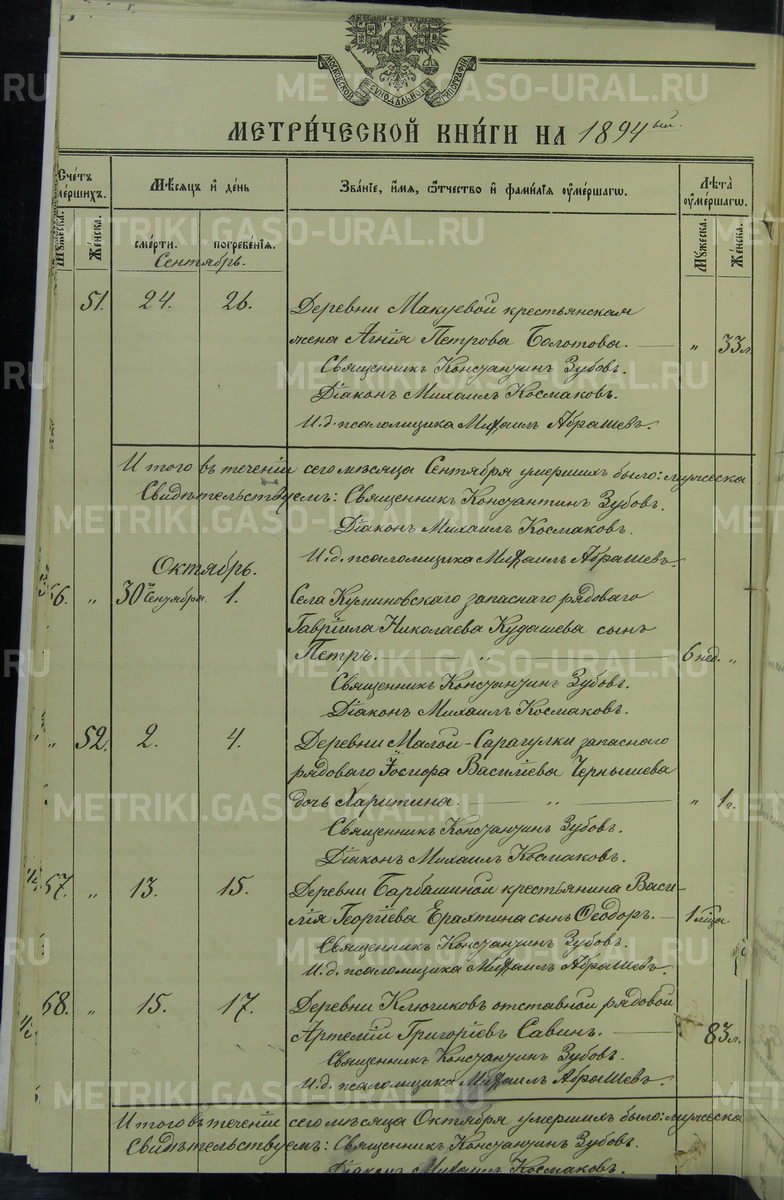 МОСКОВСКОЙ СѴНОДАЛЬНОЙ ТИПОГРАФІИ
МЕТРИ́ЧЕСКОЙ КНИ́ГИ НА 1894ый.
Сче́тъ ме́ршихъ.
Мꙋ́жеска.
Же́нска.
Мѣ́сѧцъ и҆ де́нь
сме́рти.
погребе́нїѧ.
Зва́нїе, и҆́мѧ, ѻ҆́тчество и҆ фамі́лїѧ ᲂу҆ме́ршагѡ.
Лѣ́та ᲂу҆ме́ршагѡ.
Мꙋ́жеска.
Же́нска.
Сентябрь.
51. 24. 26. Деревни Макуевой крестьянская
жена Агнія Петрова Болотова. — „ 33 л.
Священникъ Константинъ Зубовъ.
Діаконъ Михаилъ Космаковъ.
И.д. псаломщика Михаилъ Абрашевъ.
Итого въ теченіи сего мѣсяца Сентября умершихъ было: мужеска
Свидѣтельствуемъ: Священникъ Константинъ Зубовъ.
Діаконъ Михаилъ Космаковъ.
И.д. псаломщика Михаилъ Абрашевъ.
Октябрь.
56. „ 30го Сентября 1. Села Куминовскаго запаснаго рядоваго
Гавріила Николаева Кудашева сынъ
Петръ. — „ — 6 нед. „
Священникъ Константинъ Зубовъ.
Діаконъ Михаилъ Космаковъ.
„ 52. 2. 4. Деревни Малой-Сарагулки запаснаго
рядоваго Василіева Чернышева
дочь Харитина. — „ — „ 1 г.
Священникъ Константинъ Зубовъ.
Діаконъ Михаилъ Космаковъ.
57. „ 13. 15. Деревни Барбашиной крестьянина Васи-
лія Георгіева Ерахтина сынъ Ѳеодоръ. —
Священникъ Константинъ Зубовъ.
И.д. псаломщика Михаилъ Абрашевъ.
58. „ 15. 17. Деревни Ключиковъ отставной рядовой
Артемій Григоріевъ Савинъ. — 83 л.
Священникъ Константинъ Зубовъ.
И.д. псаломщика Михаилъ Абрашевъ.
Итого въ теченіи сего мѣсяца Октября умершихъ было: мужеска
Свидѣтельствуемъ: Священникъ Константинъ Зубовъ.
Діаконъ Михаилъ Космаковъ.
METRIKI.GASO-URAL.RU